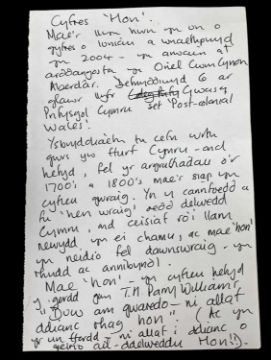 Cyfres 'Hon'.
Mae'r llun hwn yn un o
gyfres o luniau a wnaethpwyd
yn 2004 - yn anwoin at
arddangosfa yn Oriel Cwm Cynon
Aberdâr. Defnyddiwyd 6 ar
glawr llyfr Gwasg
Prifysgol Cymru sef 'Post-colonial
Wales'.
Ysbrydoliaeth tu cefn wrth
gwrs yw ffurf Cymru - ond
hefyd, fel yr argraffiadau o'r
1700's a 1800's mae'r siap yn
cyfleu gwraig. Yn y canrifoedd a
fu 'hen wraig' oedd delwedd
Cymru, md ceisiaf roi llam
newydd yn ei chamu, ac mae 'hon'
yn neidio fel dawnswraig - yn
rhydd ac annibynol.
Mae 'hon' - yn cyfleu hefyd
y gerdd gan T.H. Parry Williams
"Duw am gwaredo - ni allaf
ddianc rhag hon". (Ac yn
yr un ffordd - ni allaf i ddianc o
geisio ail-ddelweddu Hon!).